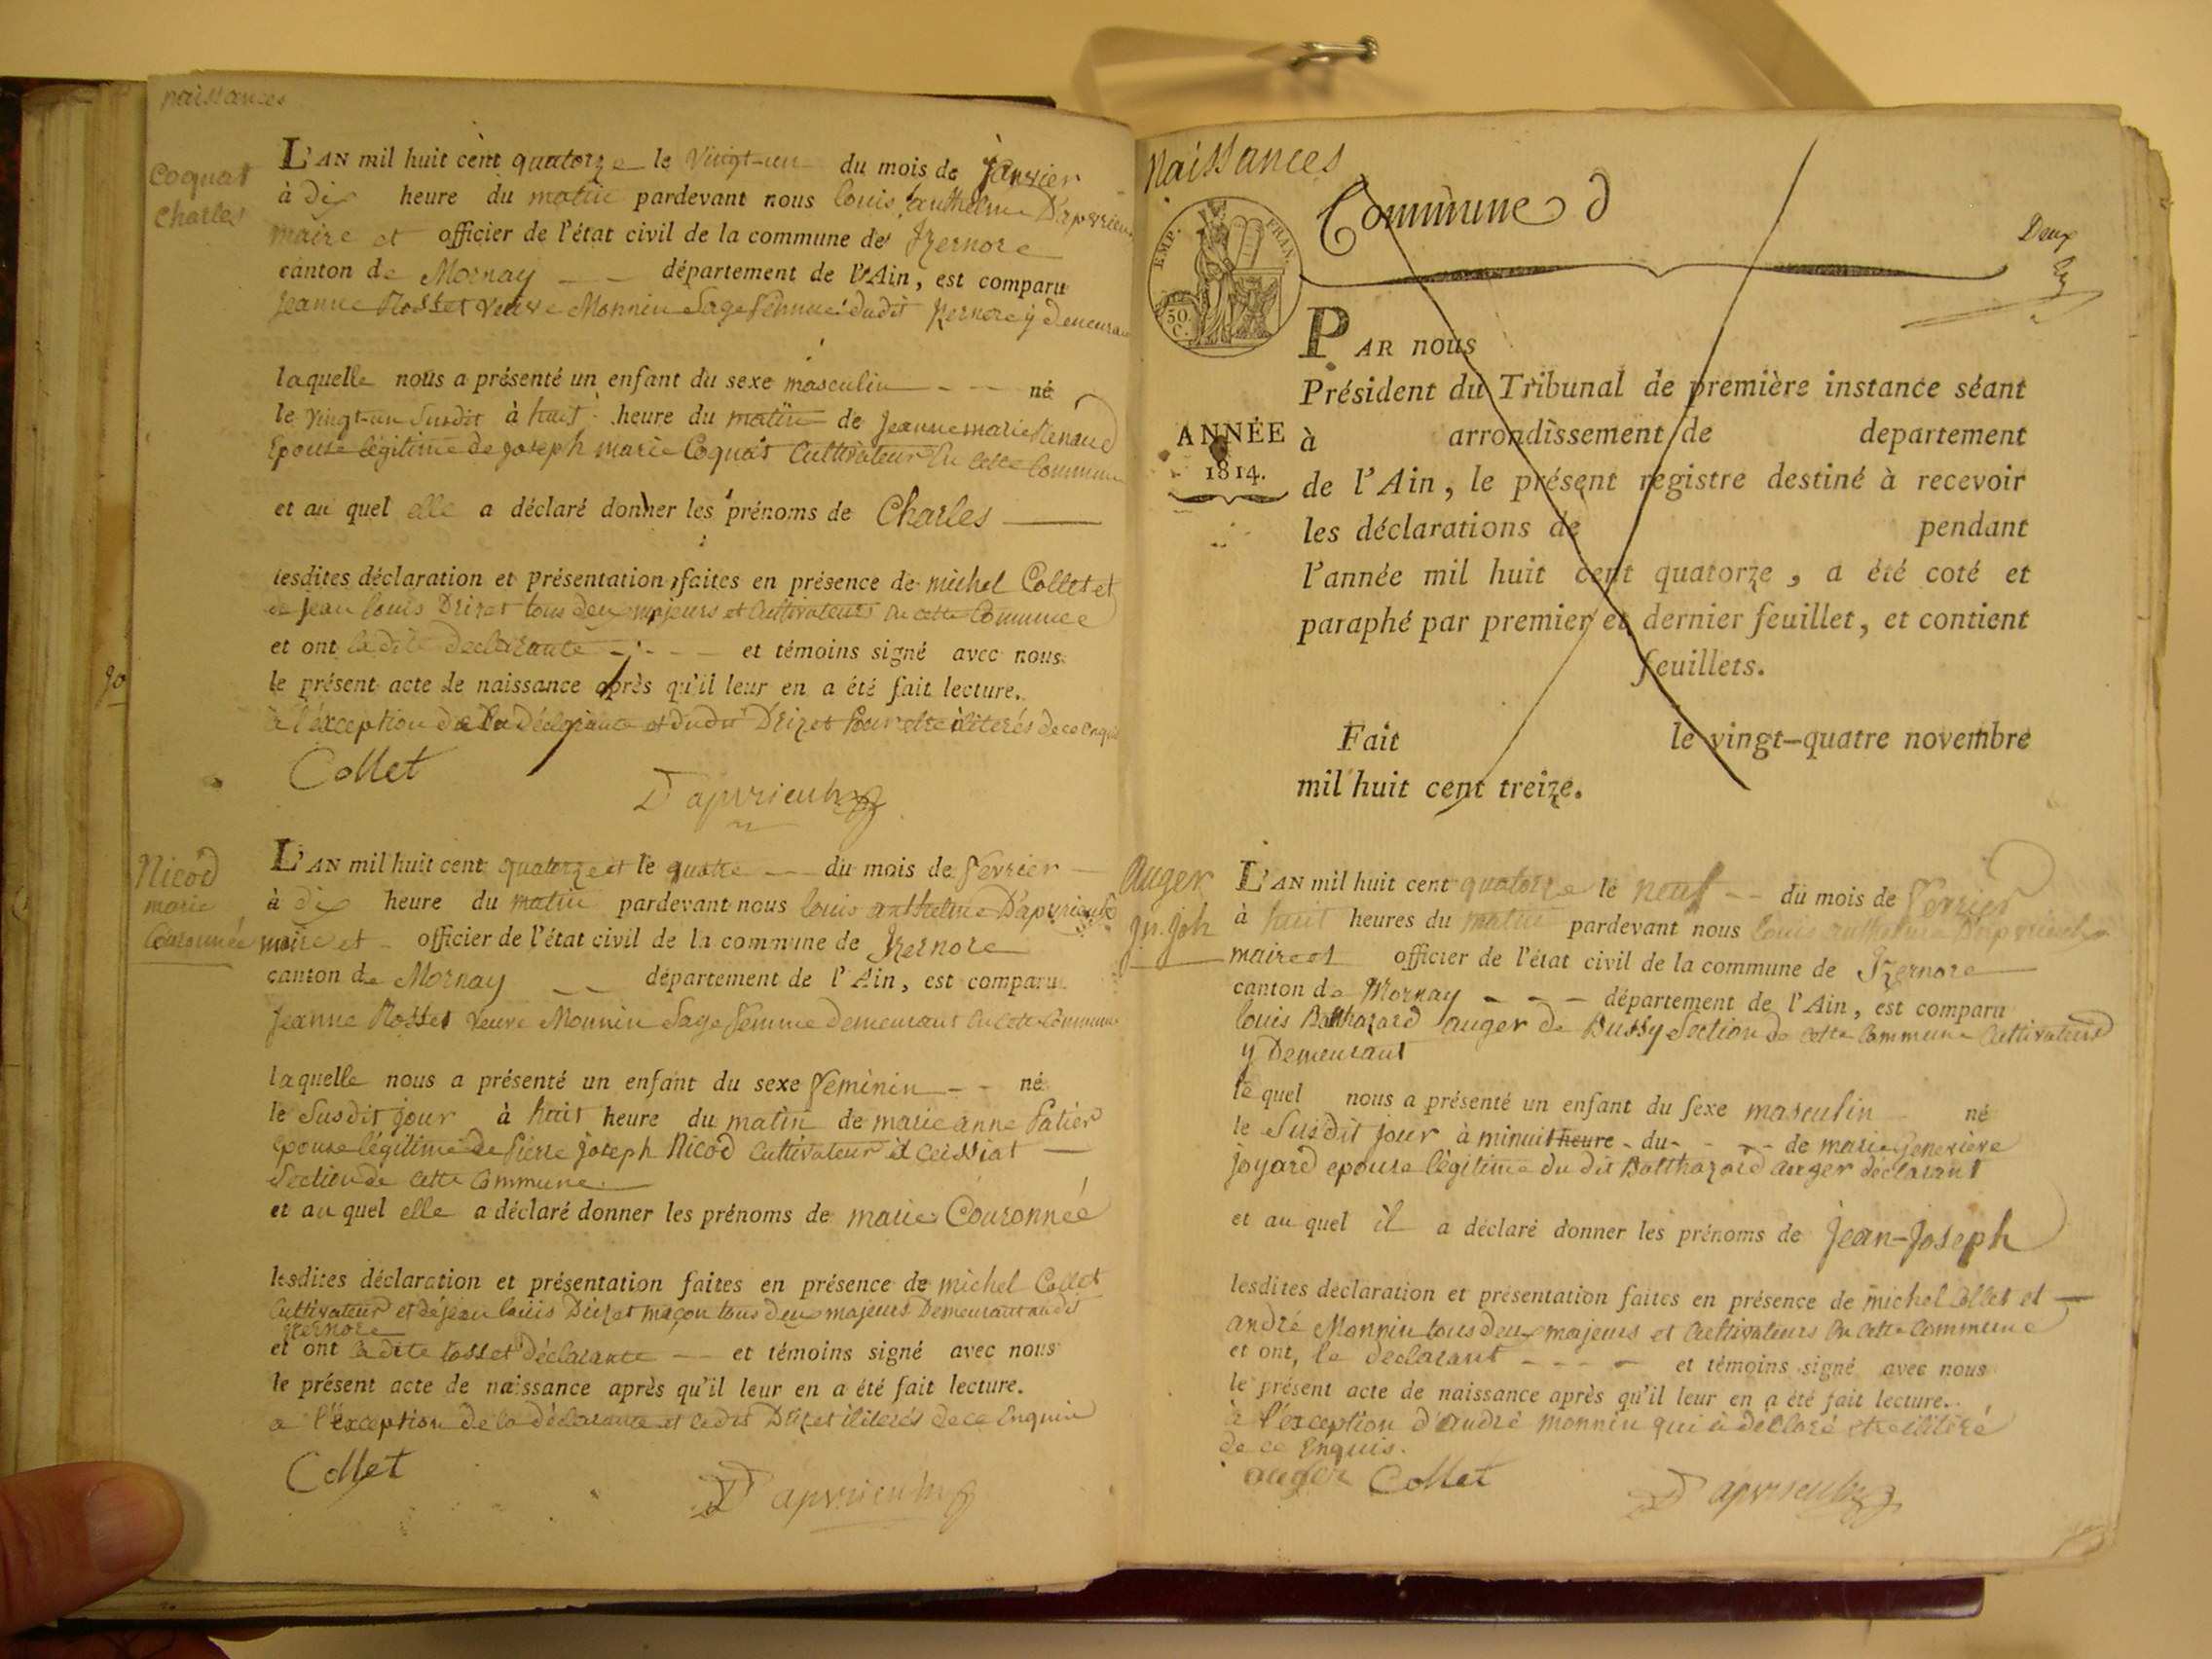 naissances
Coquat
Charles
L'AN mil huit cent quatorze le vingt-un du mois de janvier
à dix heure du matin pardevant nous louis anthelme D'apvrieulx
maire et officier de l'état civil de la commune de Izernore
canton de Mornay département de l'Ain, est comparu
Jeanne Rosset veuve Monnin Sage femme dudit Izernore y demeurant
laquelle nous a présenté un enfant du sexe masculin né
le vingt-un susdit à huit heure du matin de Jeanne marie Renaud
Epouse légitime de joseph marie Coquat Cultivateur En cette Commune
et au quel elle a déclaré donner les prénoms de Charles
lesdites déclaration et présentation faites en présence de michel Collet et
de jean louis Drizet tous deux majeurs et Cultivateurs en cette Commune
et ont ladite declarante et témoins signé avec nous
le présent acte de naissance après qu'il leur en a été fait lecture.
à l'éxception de la déclarante et dudit Drizet pour être iliterés de ce enquis
Collet
D'apvrieulx
90
Nicod
marie
Couronnée
L'AN mil huit cent quatorze et le quatre du mois de fevrier
à dix heure du matin pardevant nous louis anthelme D'apvrieulx
maire et officier de l'état civil de la commune de Izernore
canton de Mornay département de l'Ain, est comparu
Jeanne Rosset veuve Monnin Sage femme demeurant en cette Commune
laquelle nous a présenté un enfant du sexe feminin né
le susdit jour à huit heure du matin de marie anne Patier
epouse légitime de Pierre joseph Nicod Cultivateur à Ceissiat
Section de cette Commune
et au quel elle a déclaré donner les prénoms de marie Couronnée
lesdites déclaration et présentation faites en présence de michel Collet
Cultivateur et de jean louis Drizet maçon tous deux majeurs Demeurant audit
Izernore
et ont ladite Rosset déclarante et témoins signé avec nous
le présent acte de naissance après qu'il leur en a été fait lecture.
a l'éxception de la déclarante et ledit Drizet iliterés de ce Enquis
Collet
D'apvrieulx
Naissances
Commune d
Deux
EMP. FRAN.
50.
C.
PAR nous
Président du Tribunal de première instance séant
ANNÉE
1814.
à arrondissement de departement
de l'Ain, le présent registre destiné à recevoir
les déclarations de pendant
l'année mil huit cent quatorze, a été coté et
paraphé par premier et dernier feuillet, et contient
feuillets.
Fait le vingt-quatre novembre
mil huit cent treize.
Auger
Jn. Jph
L'AN mil huit cent quatorze le neuf du mois de fevrier
à huit heures du matin pardevant nous louis anthelme D'apvrieulx
maire et officier de l'état civil de la commune de Izernore
canton de Mornay département de l'Ain, est comparu
louis Balthazard auger de Bussy Section de cette Commune Cultivateur
y Demeurant
le quel nous a présenté un enfant du sexe masculin né
le susdit jour à minuit heure du de marie Genevieve
joyard epouse légitime du dit Balthazard auger déclarant
et au quel il a déclaré donner les prénoms de jean-joseph
lesdites déclaration et présentation faites en présence de michel Collet et
andré Monnin tous deux majeurs et Cultivateurs en cette Commune
et ont, le declarant et témoins signé avec nous
le présent acte de naissance après qu'il leur en a été fait lecture.
à l'éxception d'andré monnin qui à déclaré etre iliteré
de ce Enquis.
auger Collet
D'apvrieulx